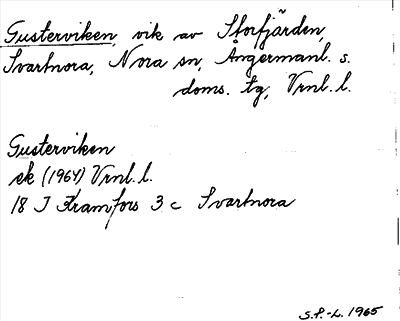 Gusterviken, vik av Storfjärden,
Svartnora, Nora sn, Ångermanl. s.
doms. tg, Vrnl. l.
Gusterviken
ek (1964) Vrnl. l.
18 I Kramfors 3 c Svartnora
S.P.-L. 1965